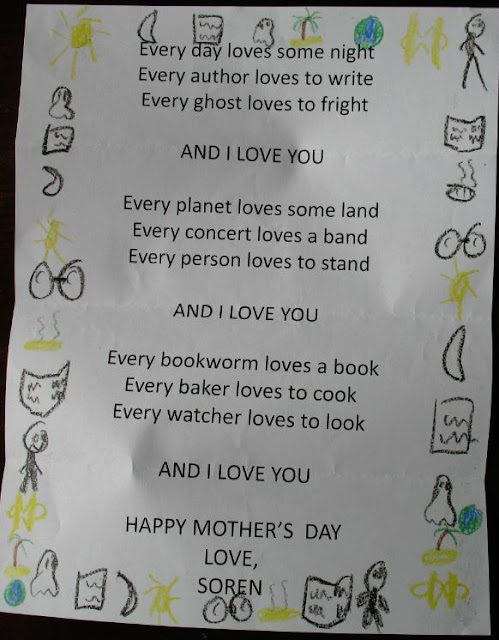 Every day loves some night
Every author loves to write
Every ghost loves to fright
AND I LOVE YOU
Every planet loves some land
Every concert loves a band
Every person loves to stand
AND I LOVE YOU
Every bookworm loves a book
Every baker loves to cook
Every watcher loves to look
AND I LOVE YOU
HAPPY MOTHER'S DAY
LOVE,
SOREN